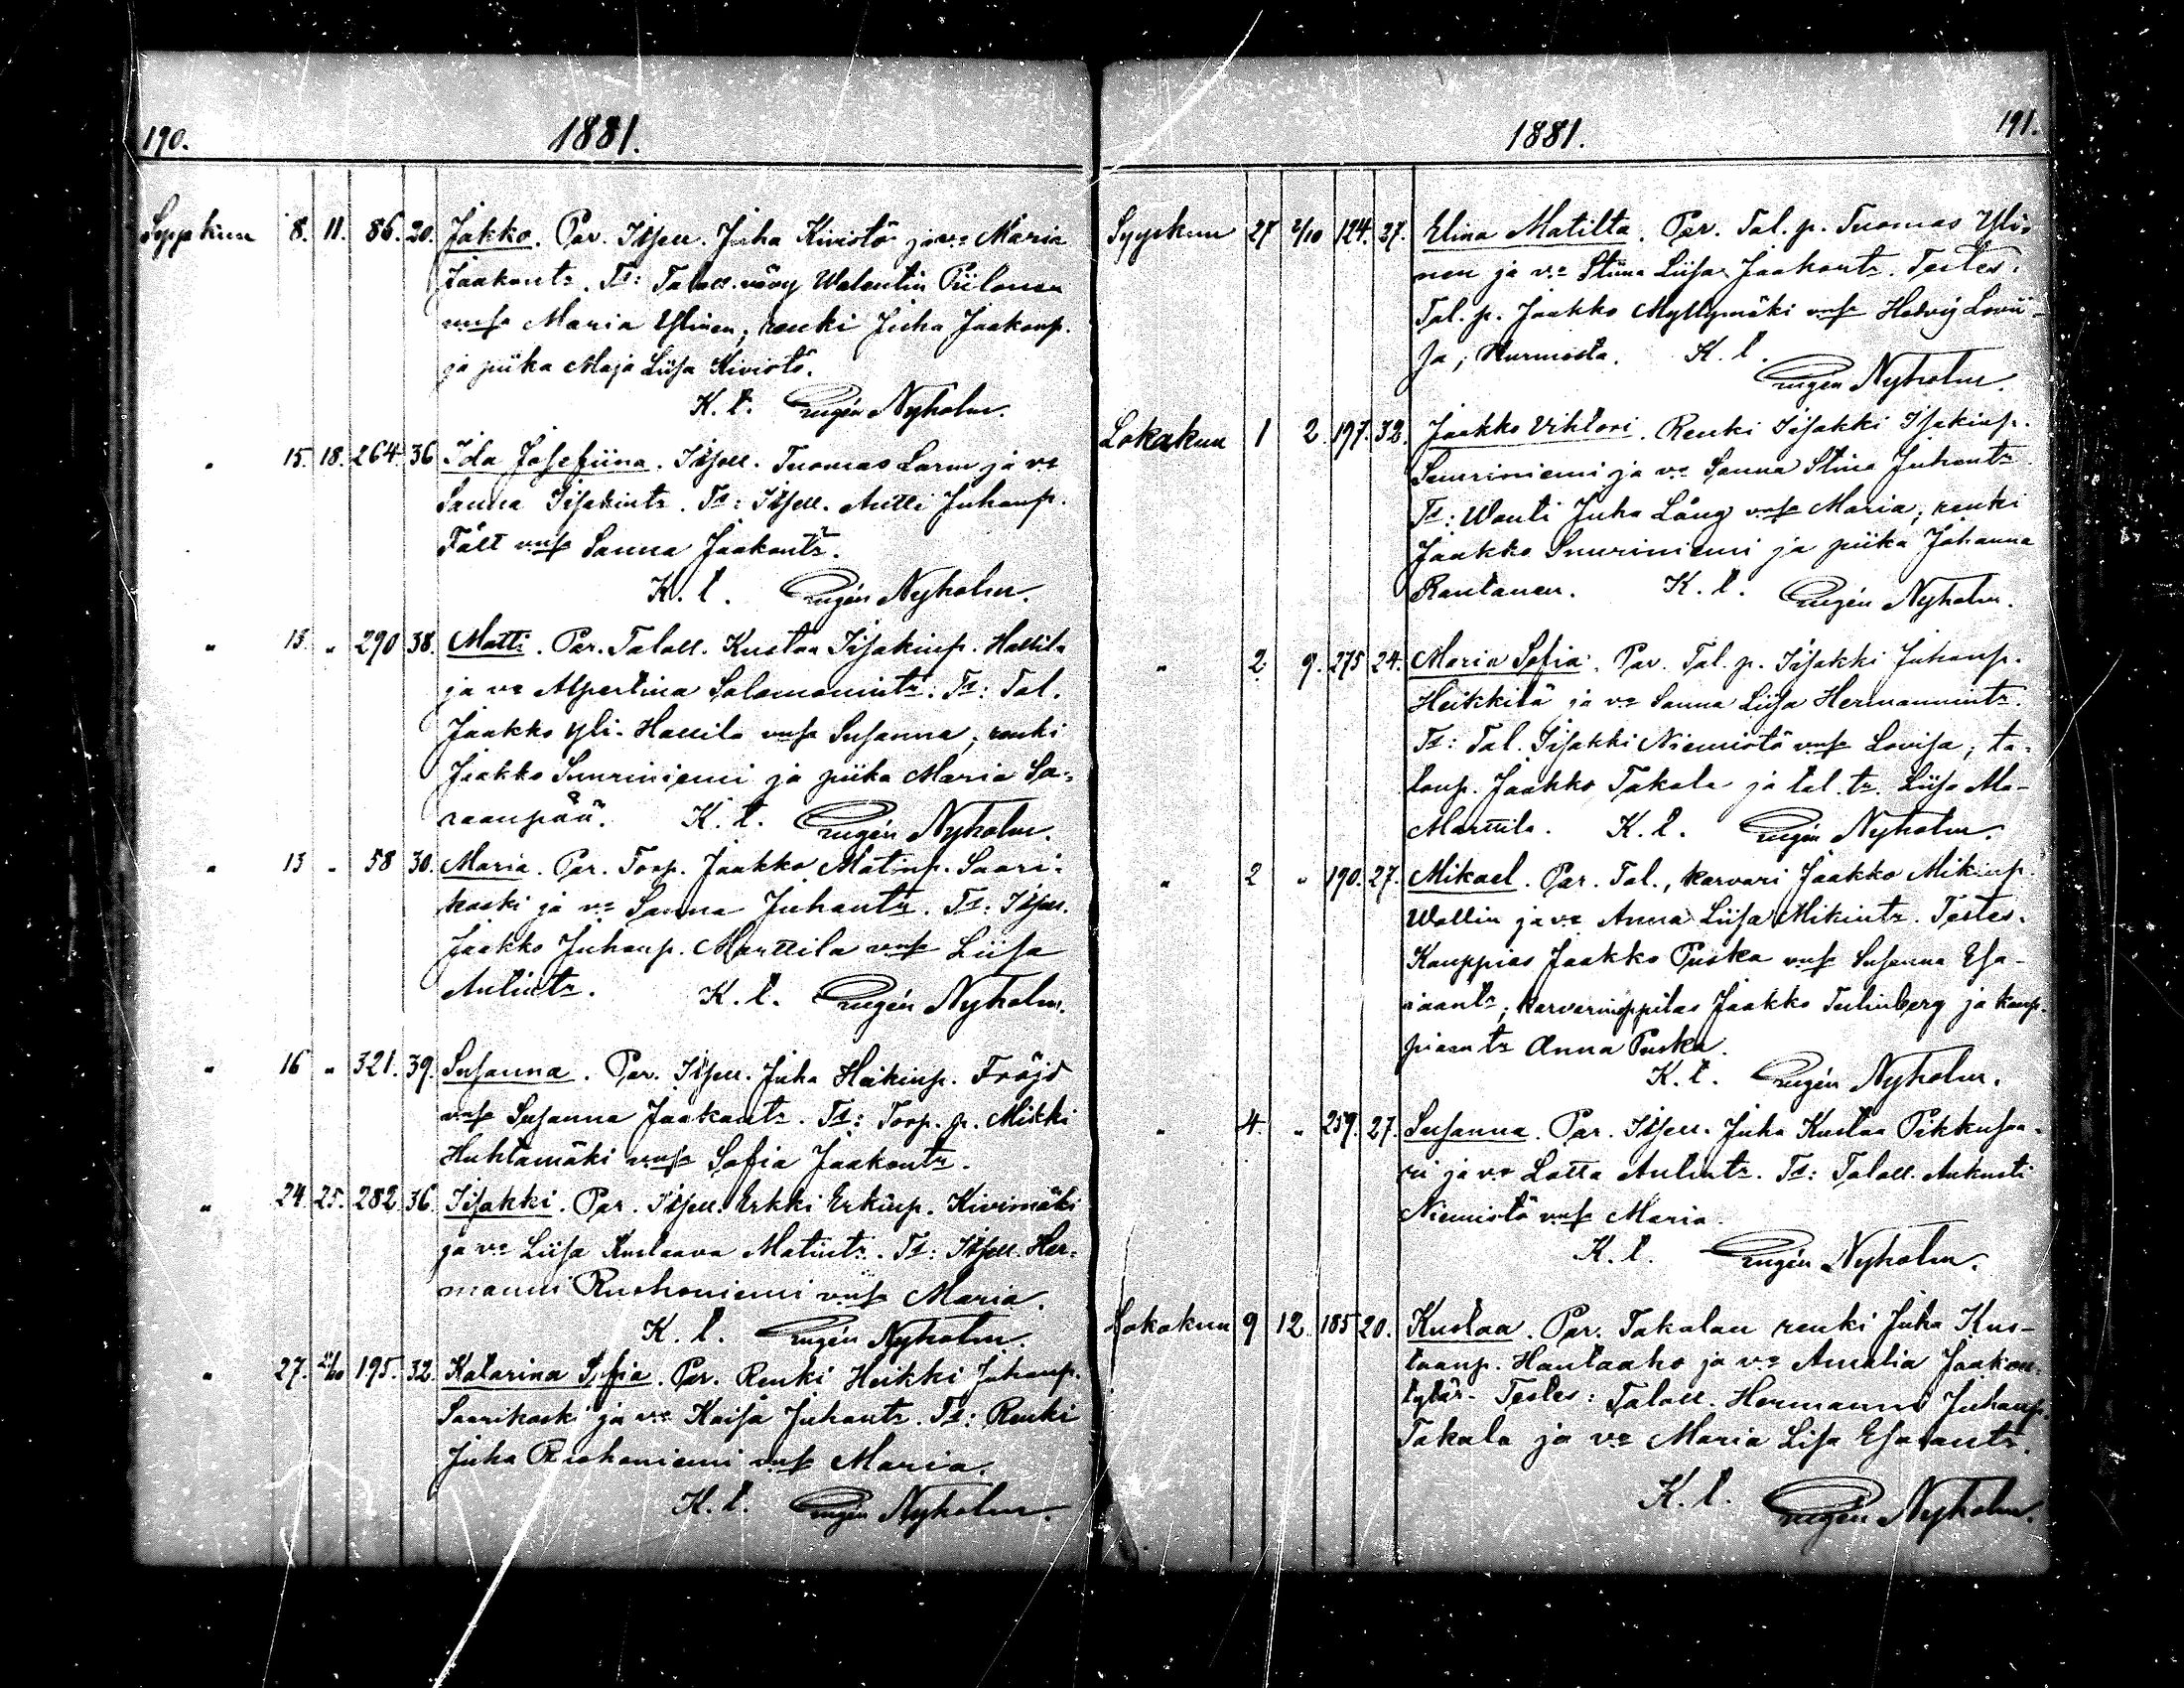 190. 1881.
Syyskuu 8. 11. 86. 20. Jakko. Par. Itsell. Juha Kivistö ja vo Maria
Jaakontr. Ts: Talall. vävy Walentin Piilonen
Maria Ylinen; renki Juha Jaakonp.
ja piika Maja Liisa Kivistö.
K. t. Eugén Nyholm.
" 15. 18. 264. 36 Ida Josefiina. Itsell. Tuomas Larm ja vo
Sanna Iisakintr. Ts: Itsell. Antti Juhanp.
Fält Sanna Jaakontr.
K. t. Eugén Nyholm.
" 13. " 290 38. Matti. Par. Talall. Kustaa Iisakinp. Hallila
ja vo Alpertina Salomonintr. Ts: Tal.
Jaakko Yli-Hallila Susanna; renki
Jaakko Suuriniemi ja piika Maria Sa-
raanpää. K. t. Eugén Nyholm.
" 13 " 58 30. Maria. Par. Torp. Jaakko Matinp. Saari-
koski ja vo Sanna Juhantr. Ts: Itsell.
Jaakko Juhanp. Marttila Liisa
Antintr. K. t. Eugén Nyholm.
" 16 " 321. 39. Susanna. Par. Itsell. Juha Heikinp. Fröjd
Susanna Jaakontr. Ts: Torp. p. Mikki
Huhtamäki Sofia Jaakontr.
" 24. 25. 282 36. Iisakki. Par. Itsell. Erkki Erkinp. Kivimäki
ja vo Liisa Kustaava Matintr. Ts: Itsell. Her-
manni Ruohoniemi Maria.
K. t. Eugén Nyholm.
" 27. 2/10 195. 32. Katarina Sofia. Par. Renki Heikki Juhanp.
Saarikoski ja vo Kaisa Juhantr. Ts: Renki
Juha Ruohoniemi Maria.
K. t. Eugén Nyholm.
1881. 191.
Syyskuu 27 2/10 124. 27. Elina Matilta. Par. Tal. p. Tuomas Yli-
nen ja vo Stiina Liisa Jaakontr. Testes:
Tal. p. Jaakko Myllymäki Hedvig Lovii-
sa; Nurmosta. K. t.
Eugén Nyholm.
Lokakuu 1 2. 197. 32. Jaakko Vihtori. Renki Iisakki Isakinp.
Suuriniemi ja vo Sanna Stina Juhantr.
Ts: Wouti Juha Lång Maria; renki
Jaakko Suuriniemi ja piika Johanna
Rantanen. K. t. Eugén Nyholm.
" 2 9. 275 24. Maria Sofia. Par. Tal. p. Iisakki Juhanp.
Heikkilä ja vo Sanna Liisa Hermannintr.
Ts: Tal. Iisakki Niemistö Lovisa; ta-
lonp. Jaakko Takala ja tal. tr. Liisa Ala-
Marttila. K. t. Eugén Nyholm.
" 2 " 190. 27. Mikael. Par. Tal., karvari Jaakko Mikinp.
Wallin ja vo Anna Liisa Mikintr. Testes:
Kauppias Jaakko Puska Susanna Esa-
iaantr; karvarinoppilas Jaakko Tulinberg ja kaup-
piaan tr Anna Puska.
K. t. Eugén Nyholm.
" 4. " 259. 27. Susanna. Par. Itsell. Juha Kustaa Pikkusaa-
ri ja vo Lotta Antintr. Ts: Talall. Aukusti
Niemistö Maria.
K. t. Eugén Nyholm.
Lokakuu 9 12. 185 20. Kustaa. Par. Takalan renki Juha Kus-
taanp. Hautaaho ja vo Amalia Jaakon-
tytär. Testes: Talall. Hermanni Juhanp.
Takala ja vo Maria Lisa Esaiantr.
K. t. Eugén Nyholm.